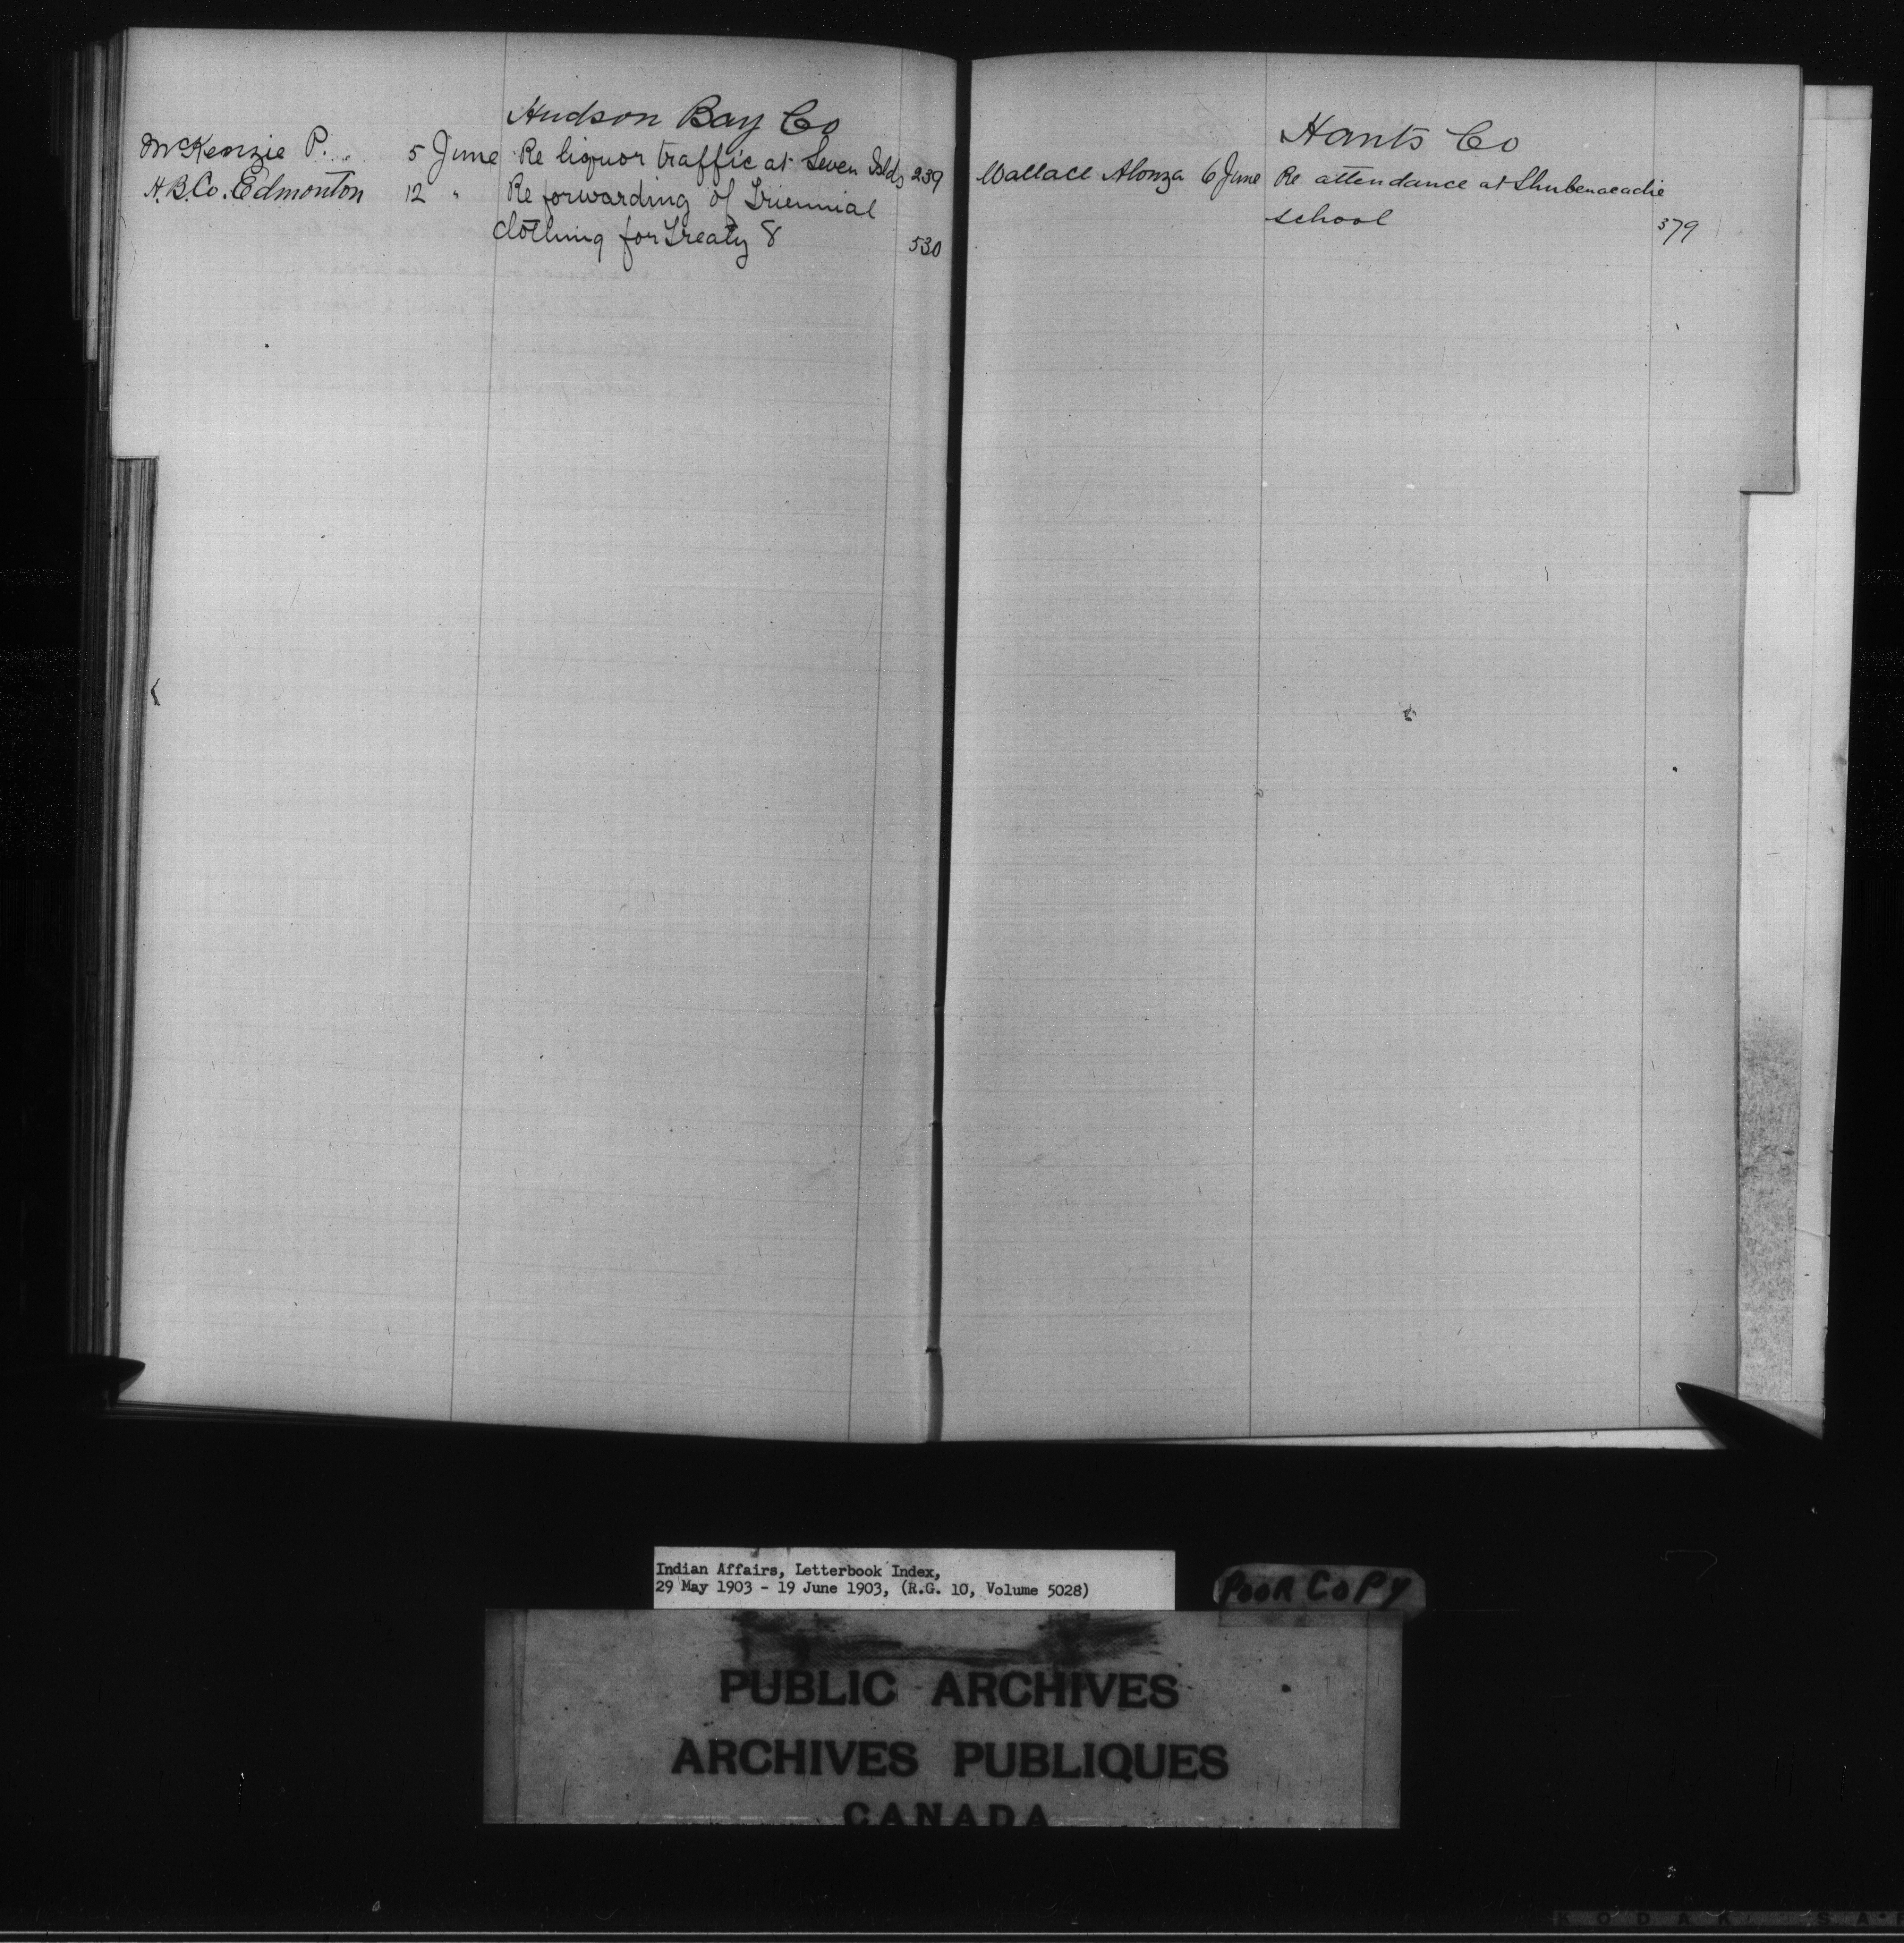 Hudson Bay Co
McKenzie P. 5 June Re liquor traffic at Seven Islds 239
H.B.Co. Edmonton 12 " Re forwarding of Triennial
clothing for Treaty 8 530
Hants Co
Wallace Alonza 6 June Re attendance at Shubenacadie
school 379
Indian Affairs, Letterbook Index,
29 May 1903 - 19 June 1903, (R.G. 10, Volume 5028)
POOR COPY
PUBLIC ARCHIVES
ARCHIVES PUBLIQUES
CANADA
KODAK